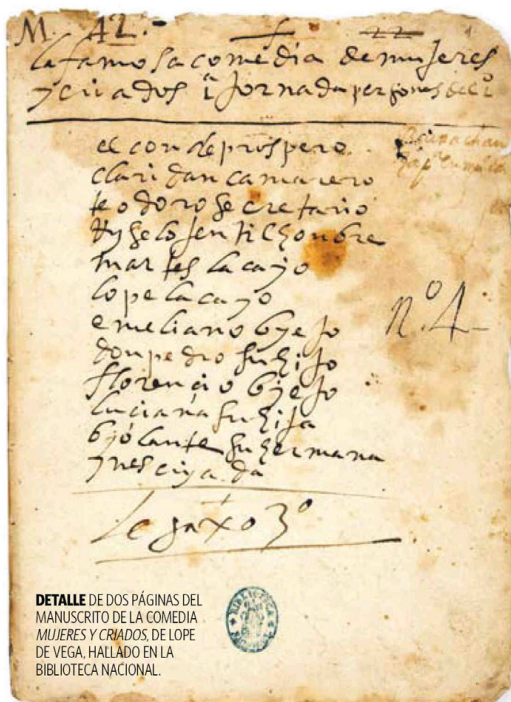 M. 42.
la famosa comedia de mujeres
y criados 1ª Jornada personas del 1º
el conde prospero
claridan camarero
teodoro secretario
Martes lacayo
lope lacayo
emeliano byejo
don pedro su hijo
florencio byejo
luciana su hija
byolante su hermana
ynes criada
nº 4
Legaxo 3º
DETALLE DE DOS PÁGINAS DEL
MANUSCRITO DE LA COMEDIA
MUJERES Y CRIADOS, DE LOPE
DE VEGA, HALLADO EN LA
BIBLIOTECA NACIONAL.
BIBLIOTECA